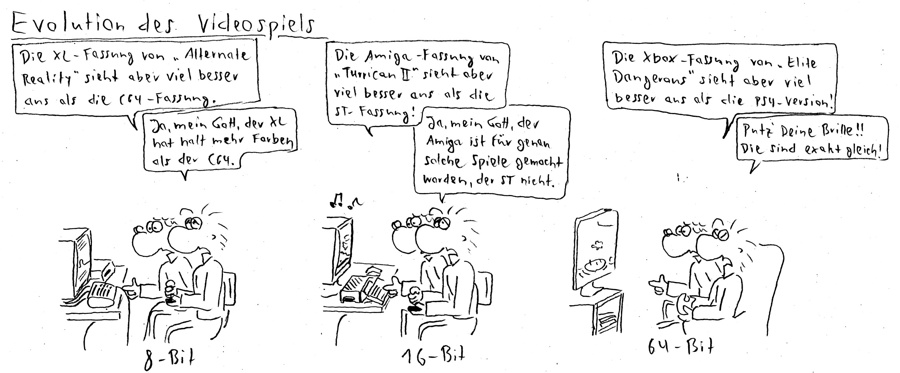 Evolution des Videospiels
Die XL-Fassung von „Alternate
Reality" sieht aber viel besser
aus als die C64-Fassung.
Ja, mein Gott, der XL
hat halt mehr Farben
als der C64.
8-Bit
Die Amiga-Fassung von
„Turrican II" sieht aber
viel besser aus als die
ST-Fassung!
Ja, mein Gott, der
Amiga ist für genau
solche Spiele gemacht
worden, der ST nicht.
16-Bit
Die Xbox-Fassung von „Elite
Dangerous" sieht aber viel
besser aus als die PS4-Version!
Putz' Deine Brille!!
Die sind exakt gleich!
64-Bit